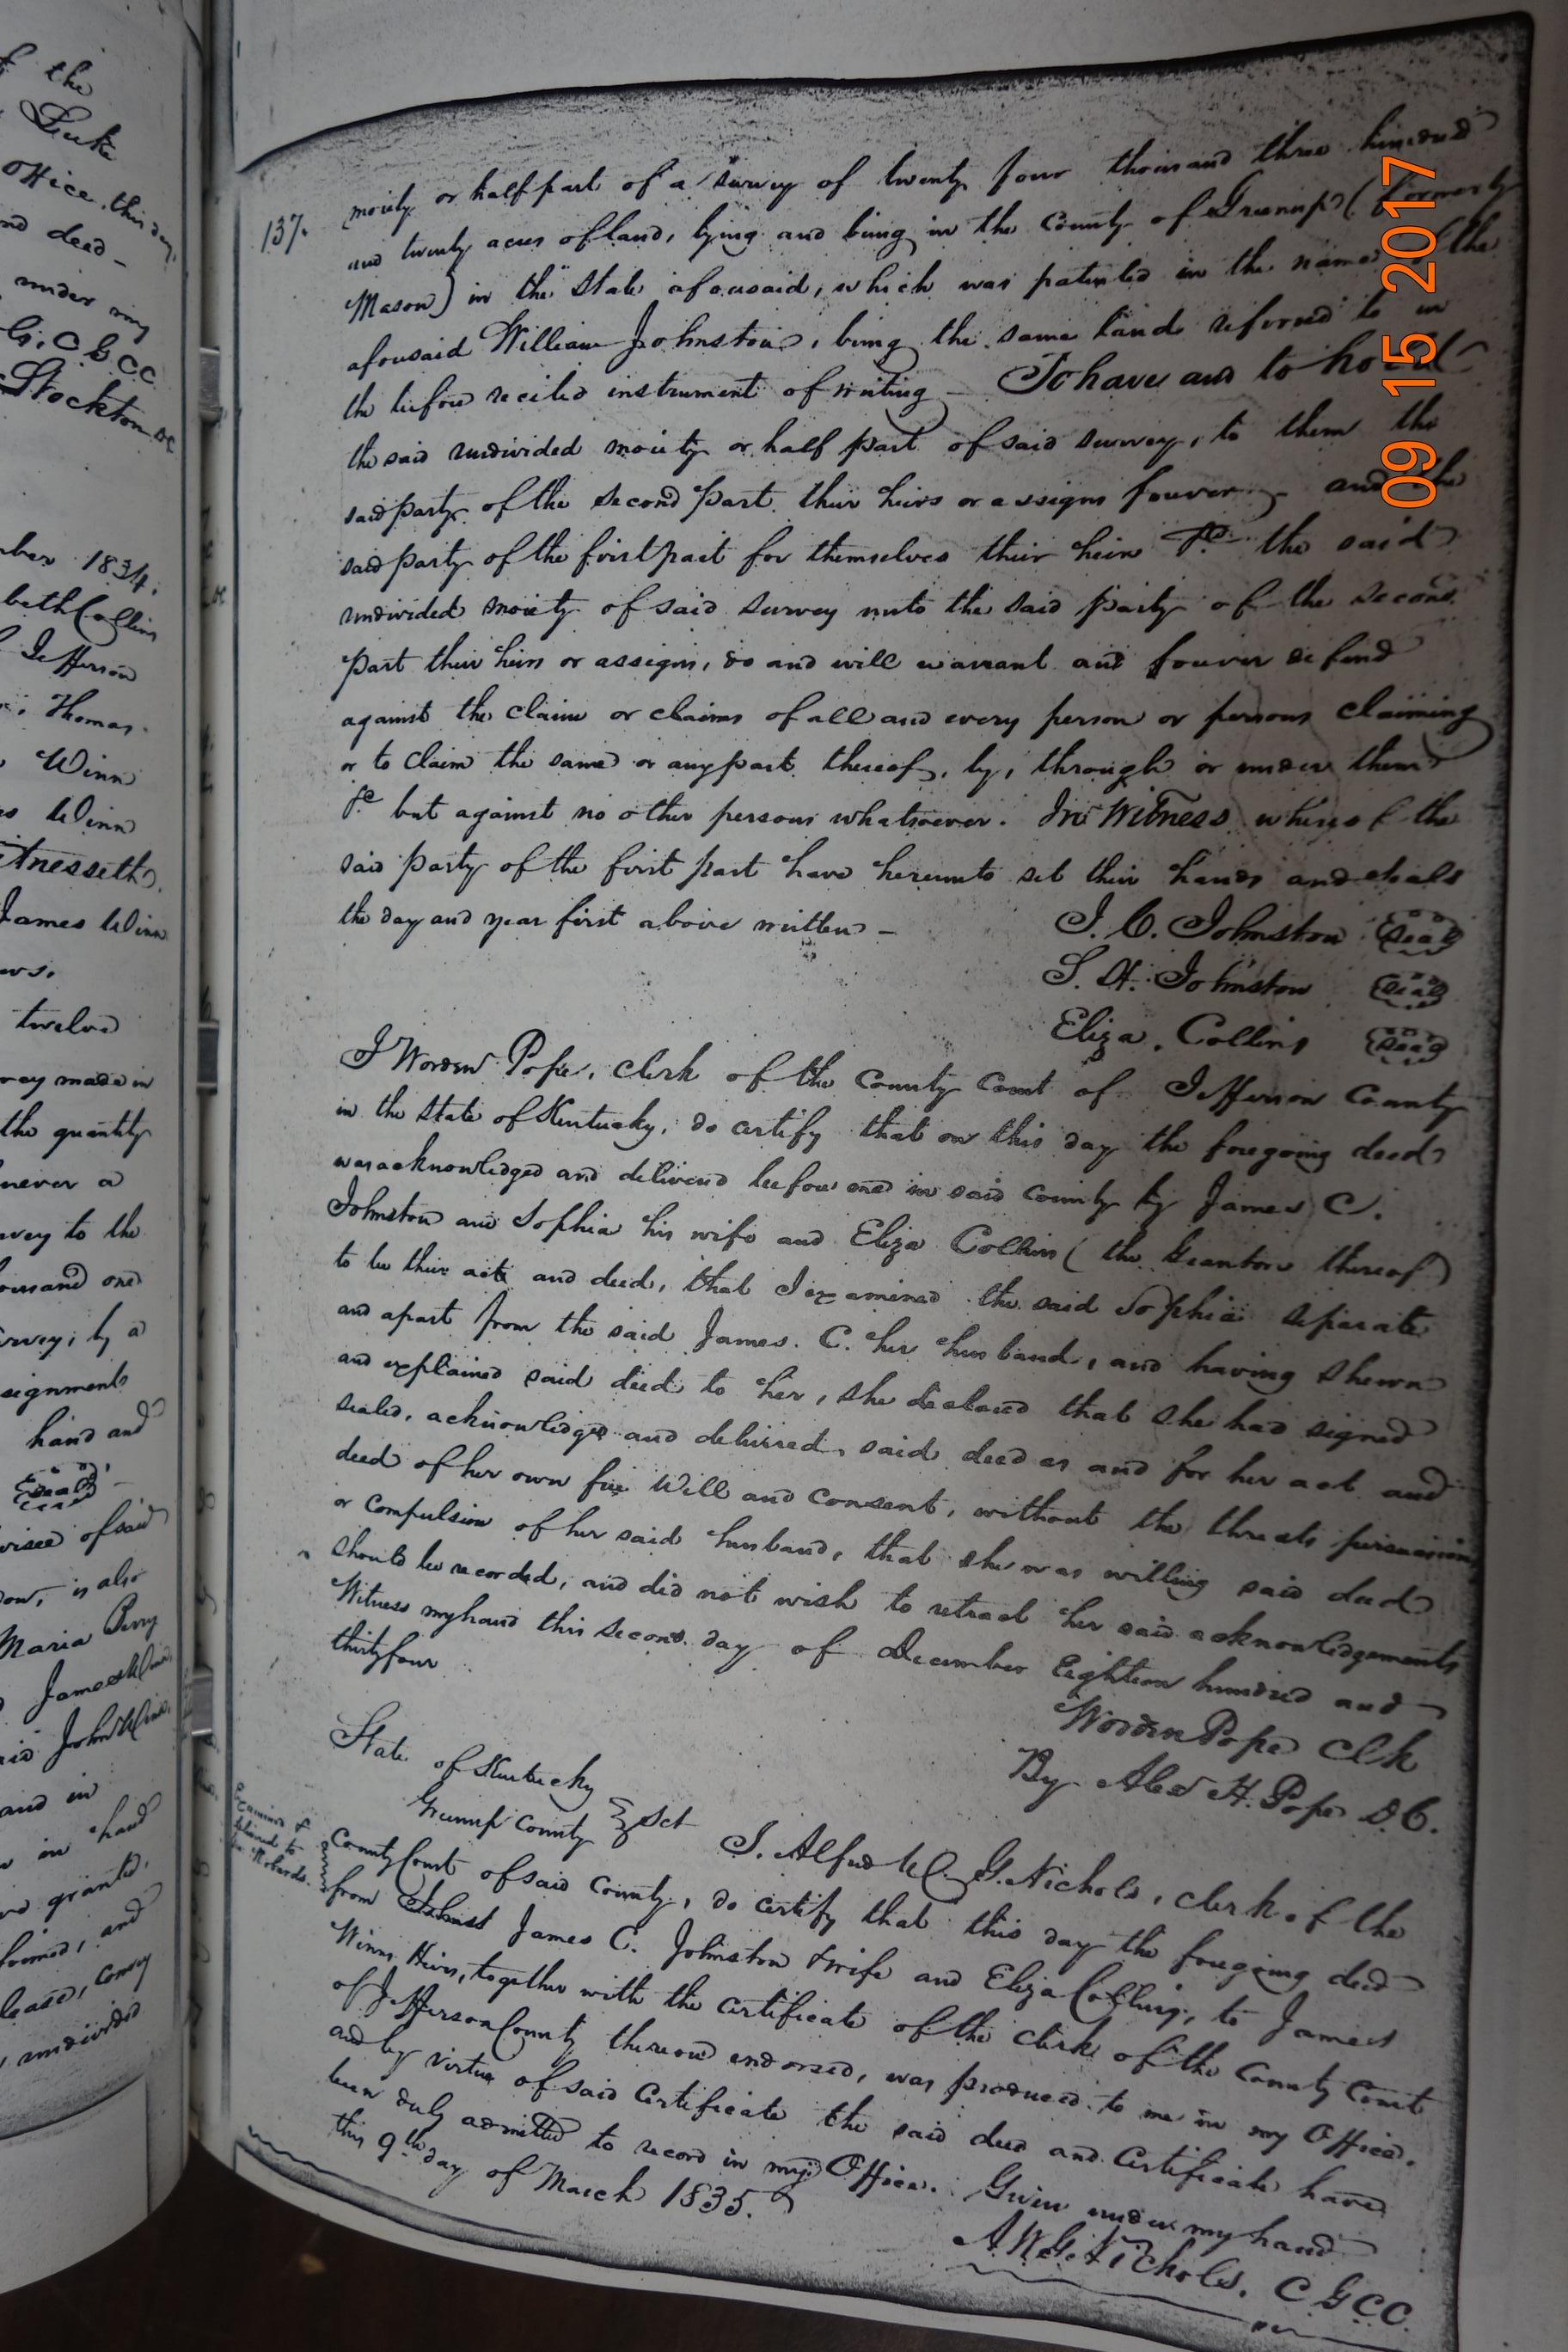 f the
Office, this day
nd deed -
under my
G. C. G. C. C.
Stockton DC
ber 1834.
beth Collins
Jefferson
Thomas.
Winn
s Winn
itnesseth.
James Winn
ws.
twelve
vey made in
the quantity
never a
vey to the
ousand one
rvey, by a
signments
hand and
Seal
visee of said
ow, is also
Maria Perry
James Winn
aid John Winn
and in
in hand
granted,
and
lease, convey
undivided
137.
moiety or half part of a survey of twenty four thousand three hundred
and twenty acres of land, lying and being in the County of Greenup (formerly
Mason) in the State aforesaid, which was patented in the name of the
aforesaid William Johnston, being the same land referred to in
the before recited instrument of writing - To have and to hold
the said undivided moiety or half part of said survey, to them the
said party of the second part their heirs or assigns forever, - and the
said party of the first part for themselves their heirs &c the said
undivided moiety of said survey unto the said party of the second
part their heirs or assigns, do and will warrant and forever defend
against the claim or claims of all and every person or persons claiming
or to claim the same or any part thereof, by, through or under them
&c but against no other persons whatsoever. In Witness whereof the
said party of the first part have hereunto set their hands and seals
the day and year first above written -
J. C. Johnston Seal
S. H. Johnston Seal
Eliza. Collins Seal
I Worden Pope, clerk of the County Court of Jefferson County
in the State of Kentucky, do certify that on this day the foregoing deed
was acknowledged and delivered before me in said county by James C.
Johnston and Sophia his wife and Eliza Collins (the Grantors thereof)
to be their act and deed, that I examined the said Sophia separate
and apart from the said James. C. her husband, and having shewn
and explained said deed to her, she declared that she had signed
sealed, acknowledged and delivered, said deed as and for her act and
deed of her own free Will and consent, without the threats persuasion
or compulsion of her said husband, that she was willing said deed
should be recorded, and did not wish to retract her said acknowledgements
Witness my hand this second day of December Eighteen hundred and
thirty four
Worden Pope Clk
By Alex H. Pope D.C.
State of Kentucky
Greenup County Sct
I. Alfred W. G. Nichols, clerk of the
County Court of said County, do certify that this day the foregoing deed
from James C. Johnston & wife and Eliza Collins, to James
Winns Heirs, together with the certificate of the clerk of the County Court
of Jefferson County thereon endorsed, was produced to me in my Office.
and by virtue of said Certificate the said deed and Certificate have
been duly admitted to record in my Office. Given under my hand
this 9th day of March 1835.
A. W. G. Nichols. C G C C.
Examined &
delivered to
Robards.
09 15 2017